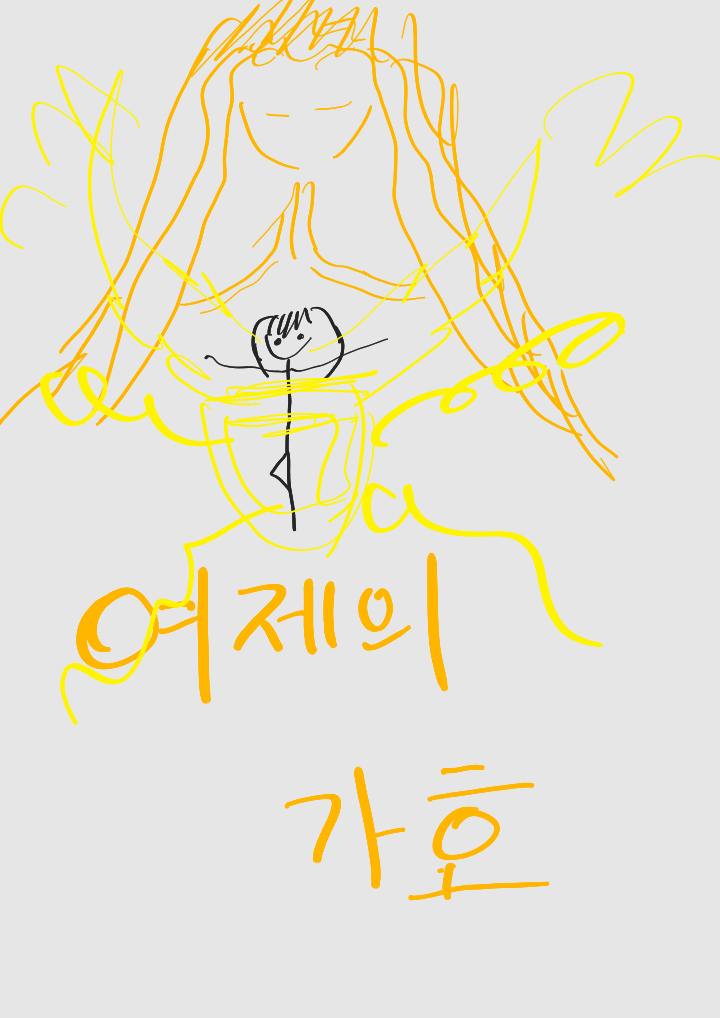 여제의
가호